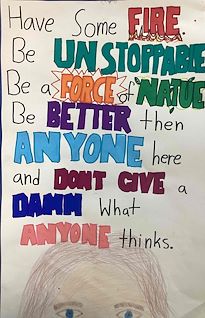 Have Some FIRE.
Be UNSTOPPABLE
Be a FORCE of NATUE
Be BETTER then
ANYONE here
and DONT GIVE a
DAMN What
ANYONE thinks.